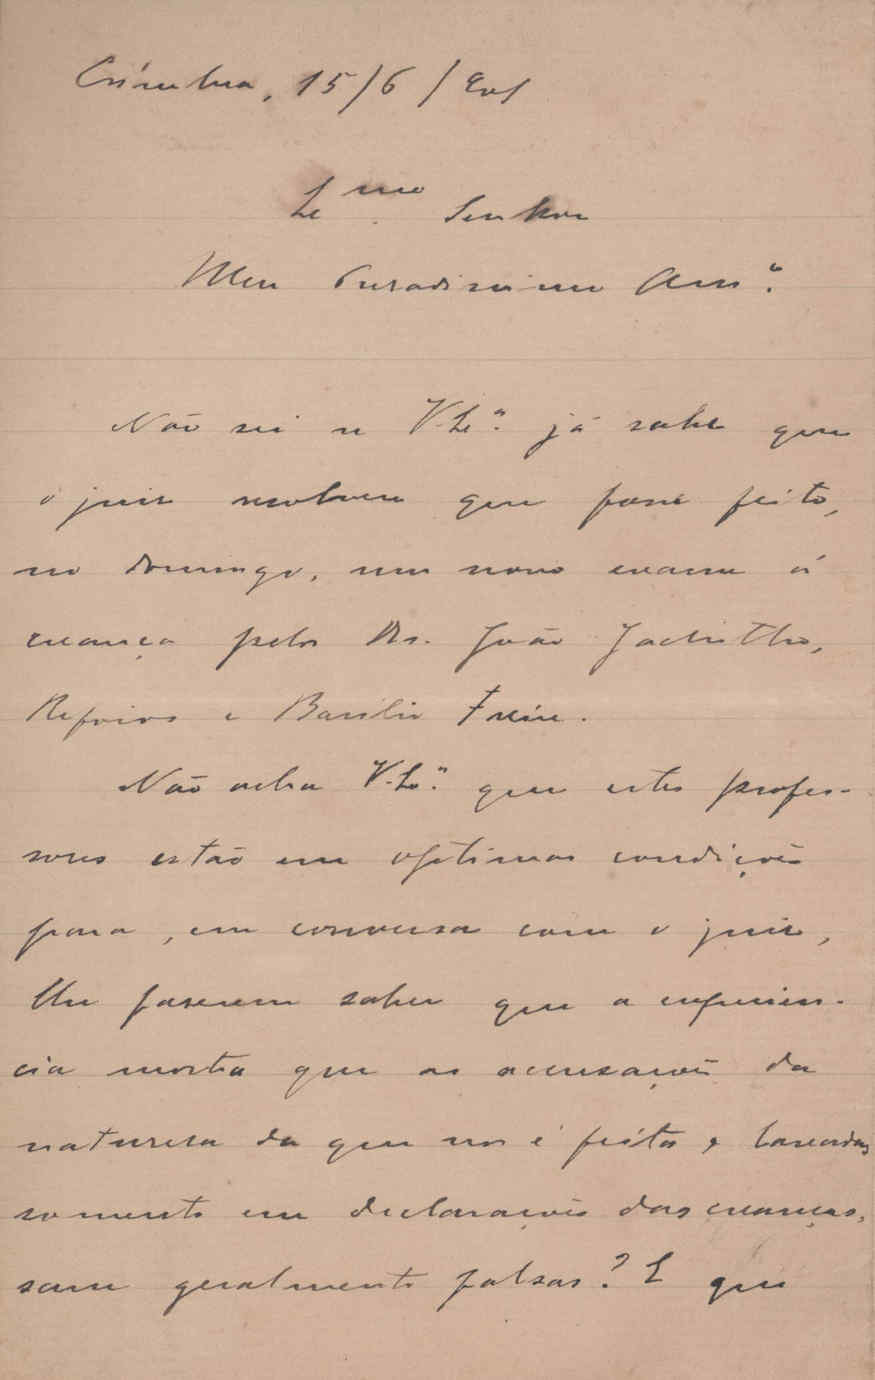 Coimbra, 15/6/901
Ex.mo Senhor
Meu Presadissimo Am.º
Não sei se V. Ex.ª já sabe que
o juiz resolveu que fosse feito,
no domingo, um novo exame á
creança pelos Drs. João Jacintho,
Refoios e Basilio Freire.
Não acha V. Ex.ª que estes profes-
sores estão em optimas condições
para, em conversa com o juiz,
lhe fazerem saber que a experien-
cia mostra que as accusações da
natureza da que nos é feita e baseadas
somente em declarações das creanças,
sam geralmente falsas? E que